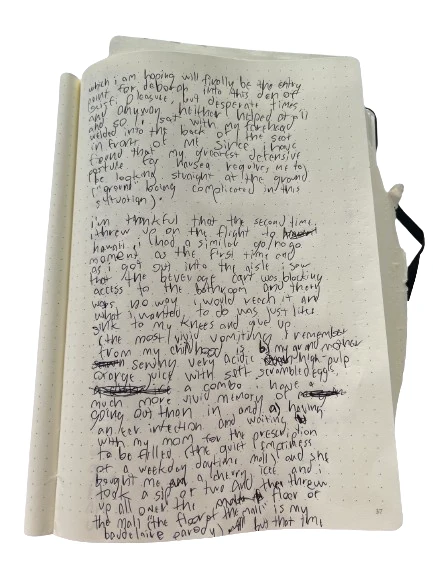 which i am hoping will finally be the entry
point for deborah into this den of
guilty pleasure, but desperate times
and anyway, neither helped at all
and so i sat with my forehead
welded into the back of the seat
in front of me since i have
found that my greatest defensive
posture for nausea requires me to
be looking straight at the ground
("ground" being complicated in this
situation).
i'm thankful that the second time
i threw up on the flight to
hawaii, i had a similar go/no go
moment as the first time and
as i got out into the aisle i saw
that the beverage cart was blocking
access to the bathroom and there
was no way i would reach it and
what i wanted to do was just like
sink to my knees and give up
(the most vivid vomiting i remember
from my childhood b) my grandmother
serving very acidic high-pulp
orange juice with soft scrambled eggs,
a combo i have a
much more vivid memory of
going out than in and a) having
an ear infection and waiting
with my mom for the prescription
to be filled (the quiet loneliness
of a weekday daytime mall) and she
bought me a cherry icee and i
took a sip or two and then threw
up all over the floor of
the mall ("the floor of the mall" is my
baudelaire parody) but that time
37